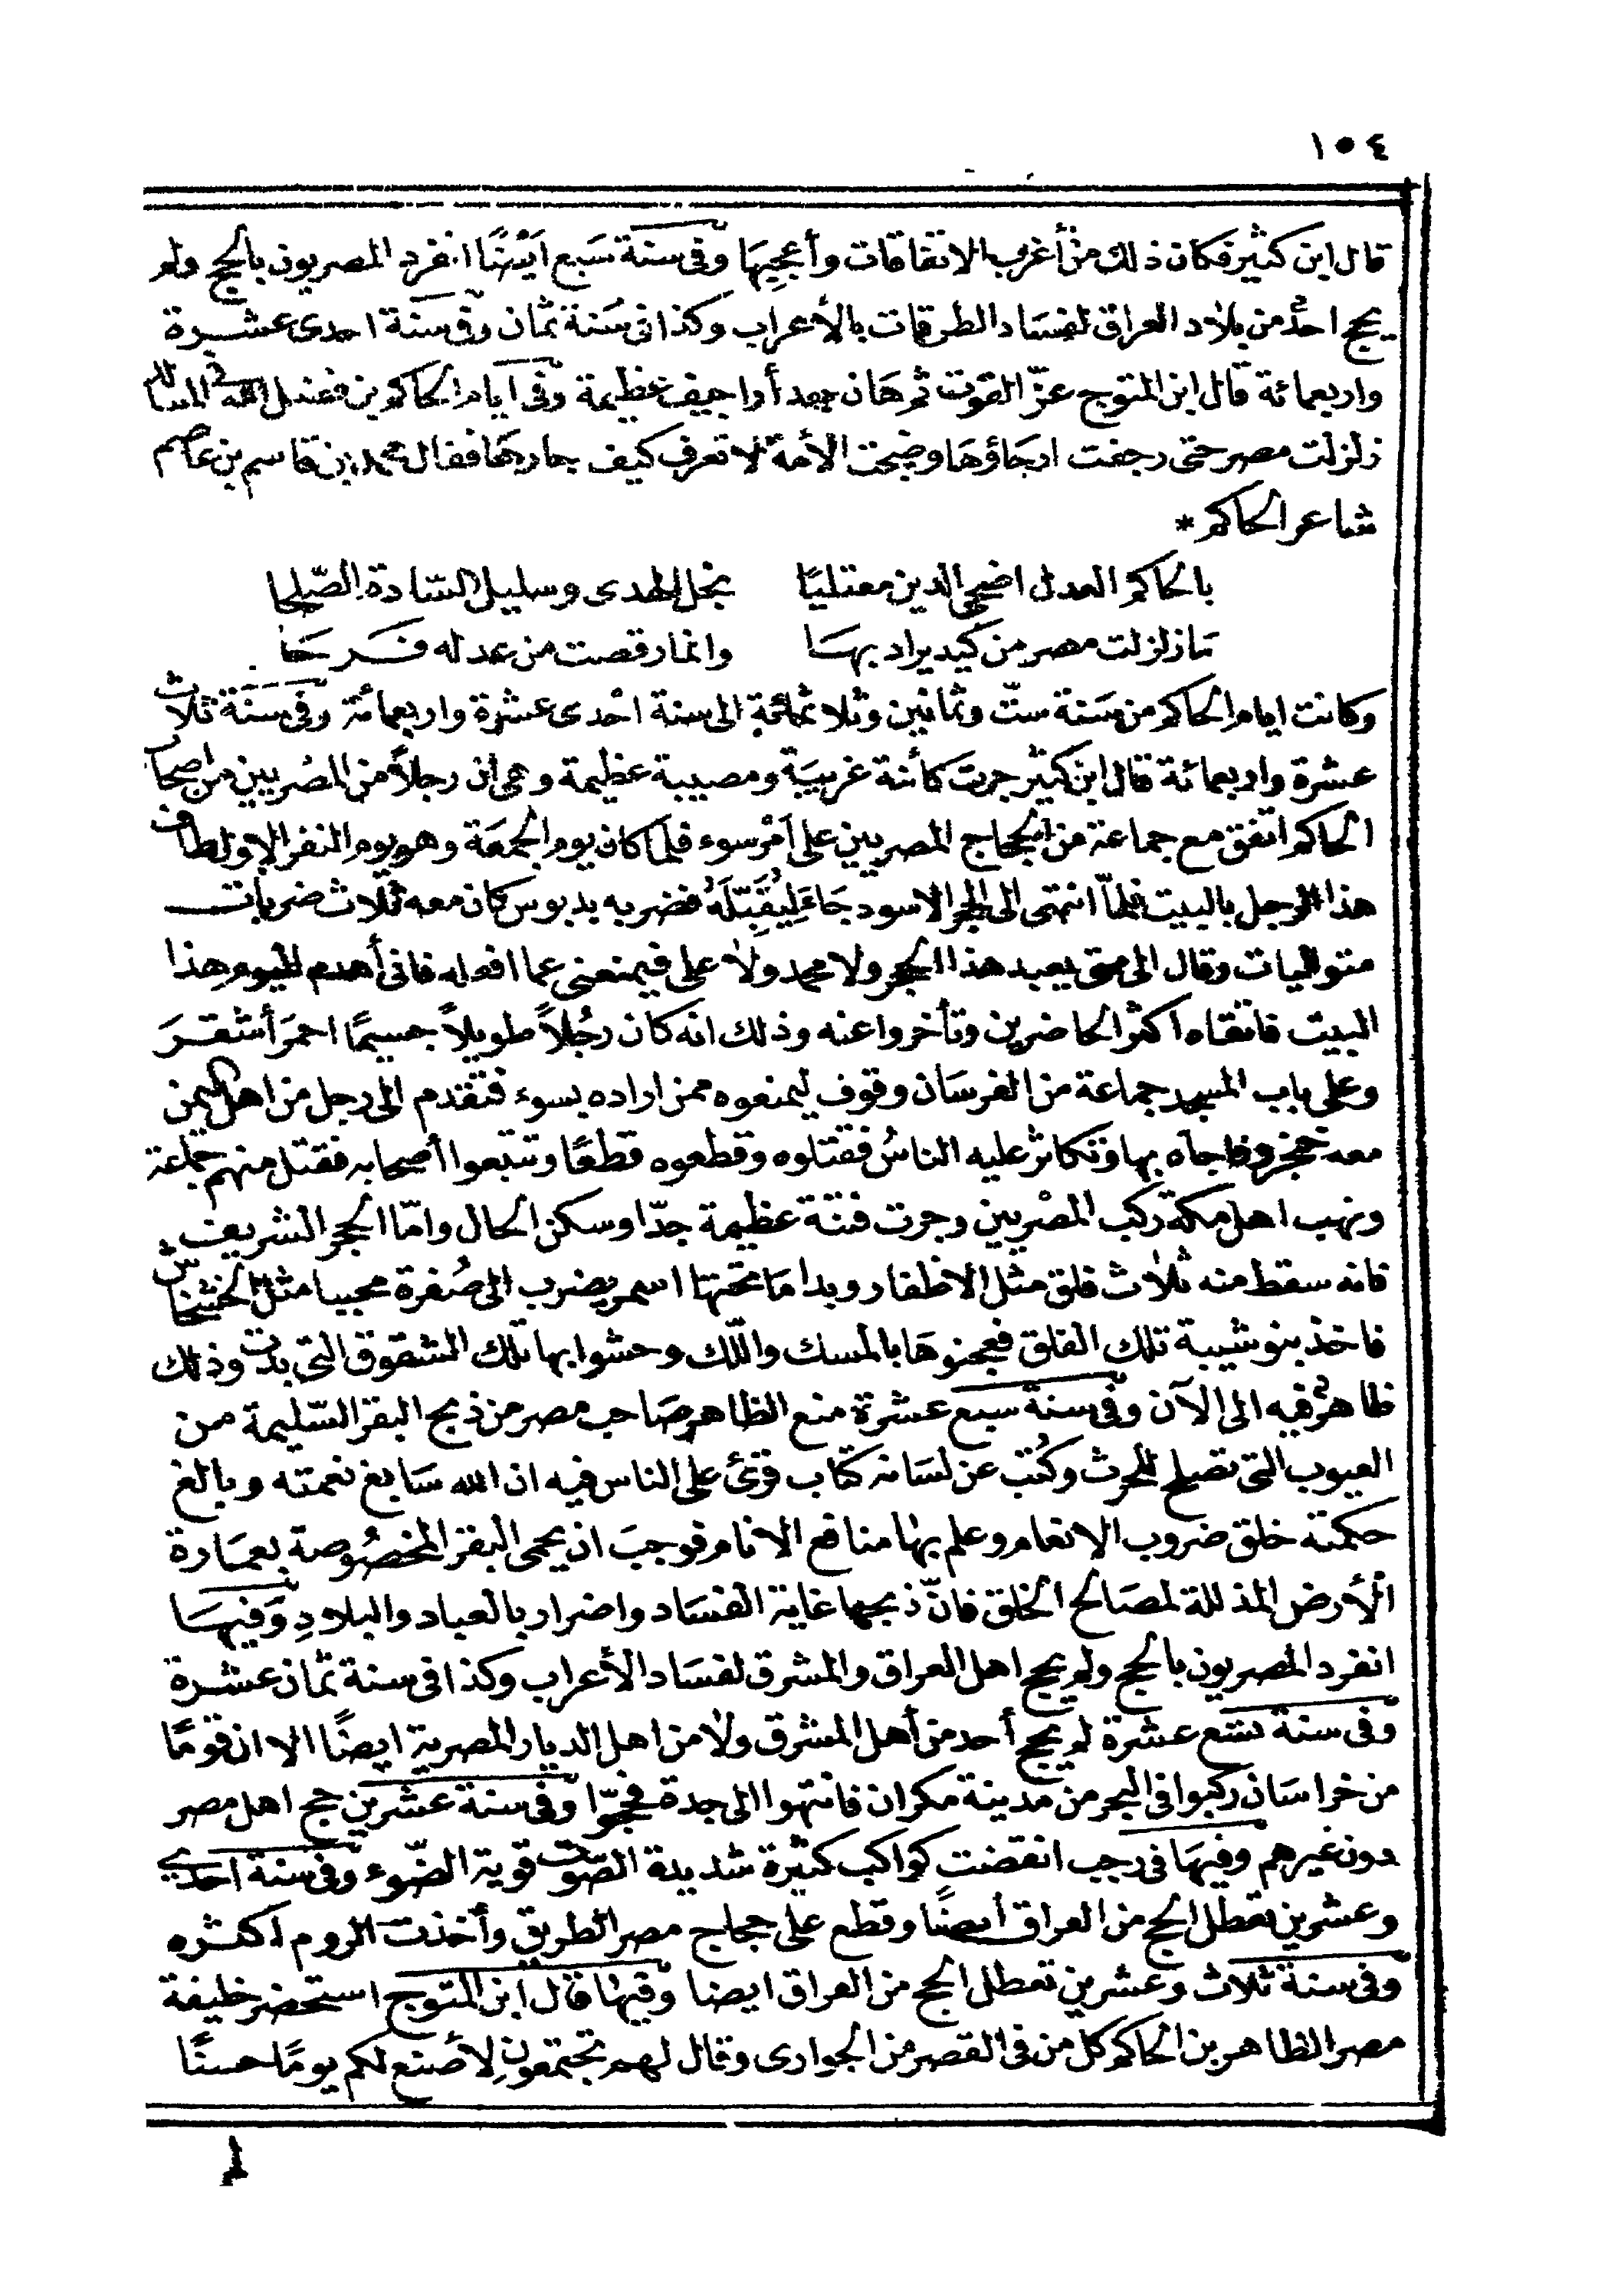 ١٥٤
قال ابن كثير فكان ذلك من أغرب الاتفاقات وأعجبها وفى سنة سبع أيضًا انفرد المصريون بالحج ولم
يحج احدٌ من بلاد العراق لفساد الطرقات بالأعراب وكذا فى سَنة ثمان وفى سنة احدى عشرة
واربعمائة قال ابن المتوج عزّ القوت ثم هان بعد أراجيف عظيمة وفى أيام الحاكم بن فضل الله فى المسالك
زلزلت مصر حتى رجفت ارجاؤها وضجت الأمة لا تعرف كيف جارها فقال محمد بن قاسم بن عاصم
شاعر الحاكم *
بالحاكم العدل اضحى الدين معتليًا نجل الهدى وسليل السّادة الصّلحا
مَا زلزلت مصر من كيد يراد بهَا وانما رقصت من عدله فَرحَا
وكانت ايام الحاكم من سَنة ستّ وثمانين وثلاثمائة الى سنة احْدى عشرة واربعمائة وفى سَنَة ثلاث
عشرة واربعمائة قال ابن كثير جرت كائنة غريبَة ومصيبة عظيمة وهى ان رجلاً من المصْريين من اصحاب
الحاكم اتفق مع جماعة من الحجاج المصريين على اَمْر سوء فلما كان يوم الجمعَة وهو يوم النفر الاول طاف
هذا الرجل بالبيت فلمّا انتهى الى الحجر الاسود جَاءَ لِيُقَبِّلَهُ فضربه بدبوس كان معه ثلاث ضربات
متواليات وقال الى متى يعبد هذا الحجر ولا محمد ولا على فيمنعنى عما افعله فانى أهدم اليوم هذا
البيت فاتقاه اكثر الحاضرين وتأخروا عنه وذلك انه كان رجُلاً طويلاً جسيمًا احمرَ أشقرَ
وعلى باب المسجد جماعة من الفرسَان وقوف ليمنعوه ممن اراده بسوء فتقدم الى رجل من اهل اليمن
معه خنجر وفاجأه بها وتكاثر عليه الناسُ فقتلوه وقطعوه قطعًا وتتبعوا أصحابه فقتل منهم جماعة
ونهب اهل مكة ركب المصْريين وجرت فتنة عظيمة جدّا وسكن الحال وامّا الحجر الشريف
فانه سقط منه ثلاث فلق مثل الاظفار وبدا مَا تحتها اسمر يضرب الى صُفرة محببا مثل الخشخاش
فاخذ بنو شيبة تلك الفلق فعجنوهَا بالمسك واللّك وحشوا بها تلك الشقوق التى بدت وذلك
ظاهرٌ فيه الى الآن وفى سنة سبع عشرة منع الظاهر صَاحب مصر من ذبح البقر السّليمة من
العيوب التى تصلح للحرث وكُتب عن لسَانه كتاب قرئ على الناس فيه ان الله سَابغ نعمته وبالغ
حكمته خلق ضروب الانعام وعلم بها منافع الانام فوجبَ ان يحمى البقر المخصُوصة بعمَارة
الْأرض المذللة لمصَالح الخلق فانّ ذبحها غاية الفسَاد واضرار بالعباد والبلادِ وَفيهَا
انفرد المصريون بالحج ولم يحج اهل العراق والمشرق لفسَاد الأعراب وكذا فى سنة ثمان عشرة
وفى سنة تسع عشرة لم يحج أحد من أهل المشرق ولا من اهل الديار المصرية ايضًا الا ان قومًا
من خراسَان ركبوا فى البحر من مدينة مكران فانتهوا الى جدة فحجّوا وفى سنة عشرين حج اهل مصر
دون غيرهم وفيهَا فى رجب انقضت كواكب كثيرة شديدة الصّوت قوية الضّوء وفى سنة احدى
وعشرين تعطل الحج من العراق أيضًا وقطع على حجاج مصر الطريق وأخذت الروم اكثره
وفى سنة ثلاث وعشرين تعطل الحج من العراق ايضا وفيها قال ابن المتوج استحضر خليفة
مصر الظاهر بن الحاكم كل من فى القصر من الجوارى وقال لهم تجتمعون لِأصنع لكم يومًا حسنًا